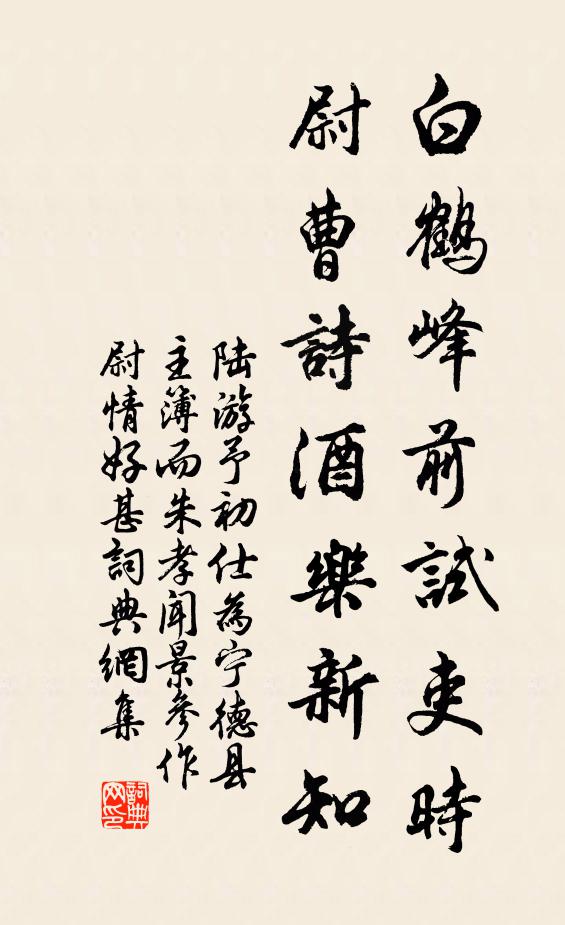 白鶴峰前試吏時
尉曹詩酒樂新知
陆游予初仕為宁德县
主簿而朱孝闻景參作
尉情好甚詞典網集
詞典
网印